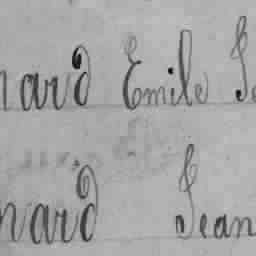 nard Emile Je
nard Jean